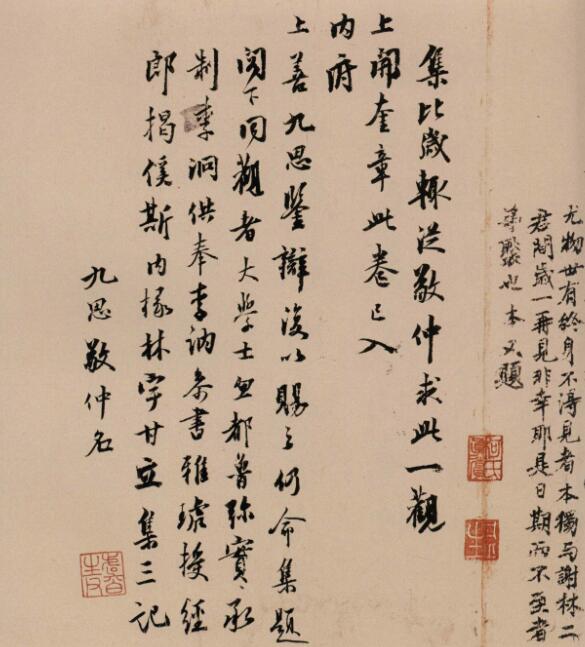 尤物世有終身不得見者本獨与謝林二
君間歲一再見非幸耶是日期而不至者
也本又題
集比歲輒從敬仲求此一觀
上開奎章此卷已入
內府
上善九思鑒辯復以賜之仍命集題
閣下同觀者大學士忽都魯弥實承
制李泂供奉李訥叅書雅琥授經
郎揭傒斯內掾林宇甘立集三記
九思敬仲名